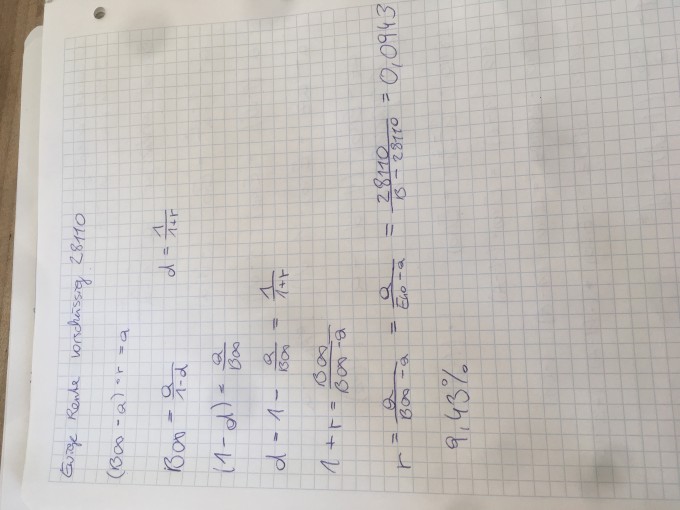 Ewige Rente vorschüssig 28110
(B∞ - a) · r = a
B∞ = a/(1-d)    d = 1/(1+r)
(1-d) = a/B∞
d = 1 - a/B∞ = 1/(1+r)
1+r = B∞/(B∞-a)
r = a/(B∞-a) = a/(E∞-a) = 28110/(B-28110) = 0,0943
9,43%